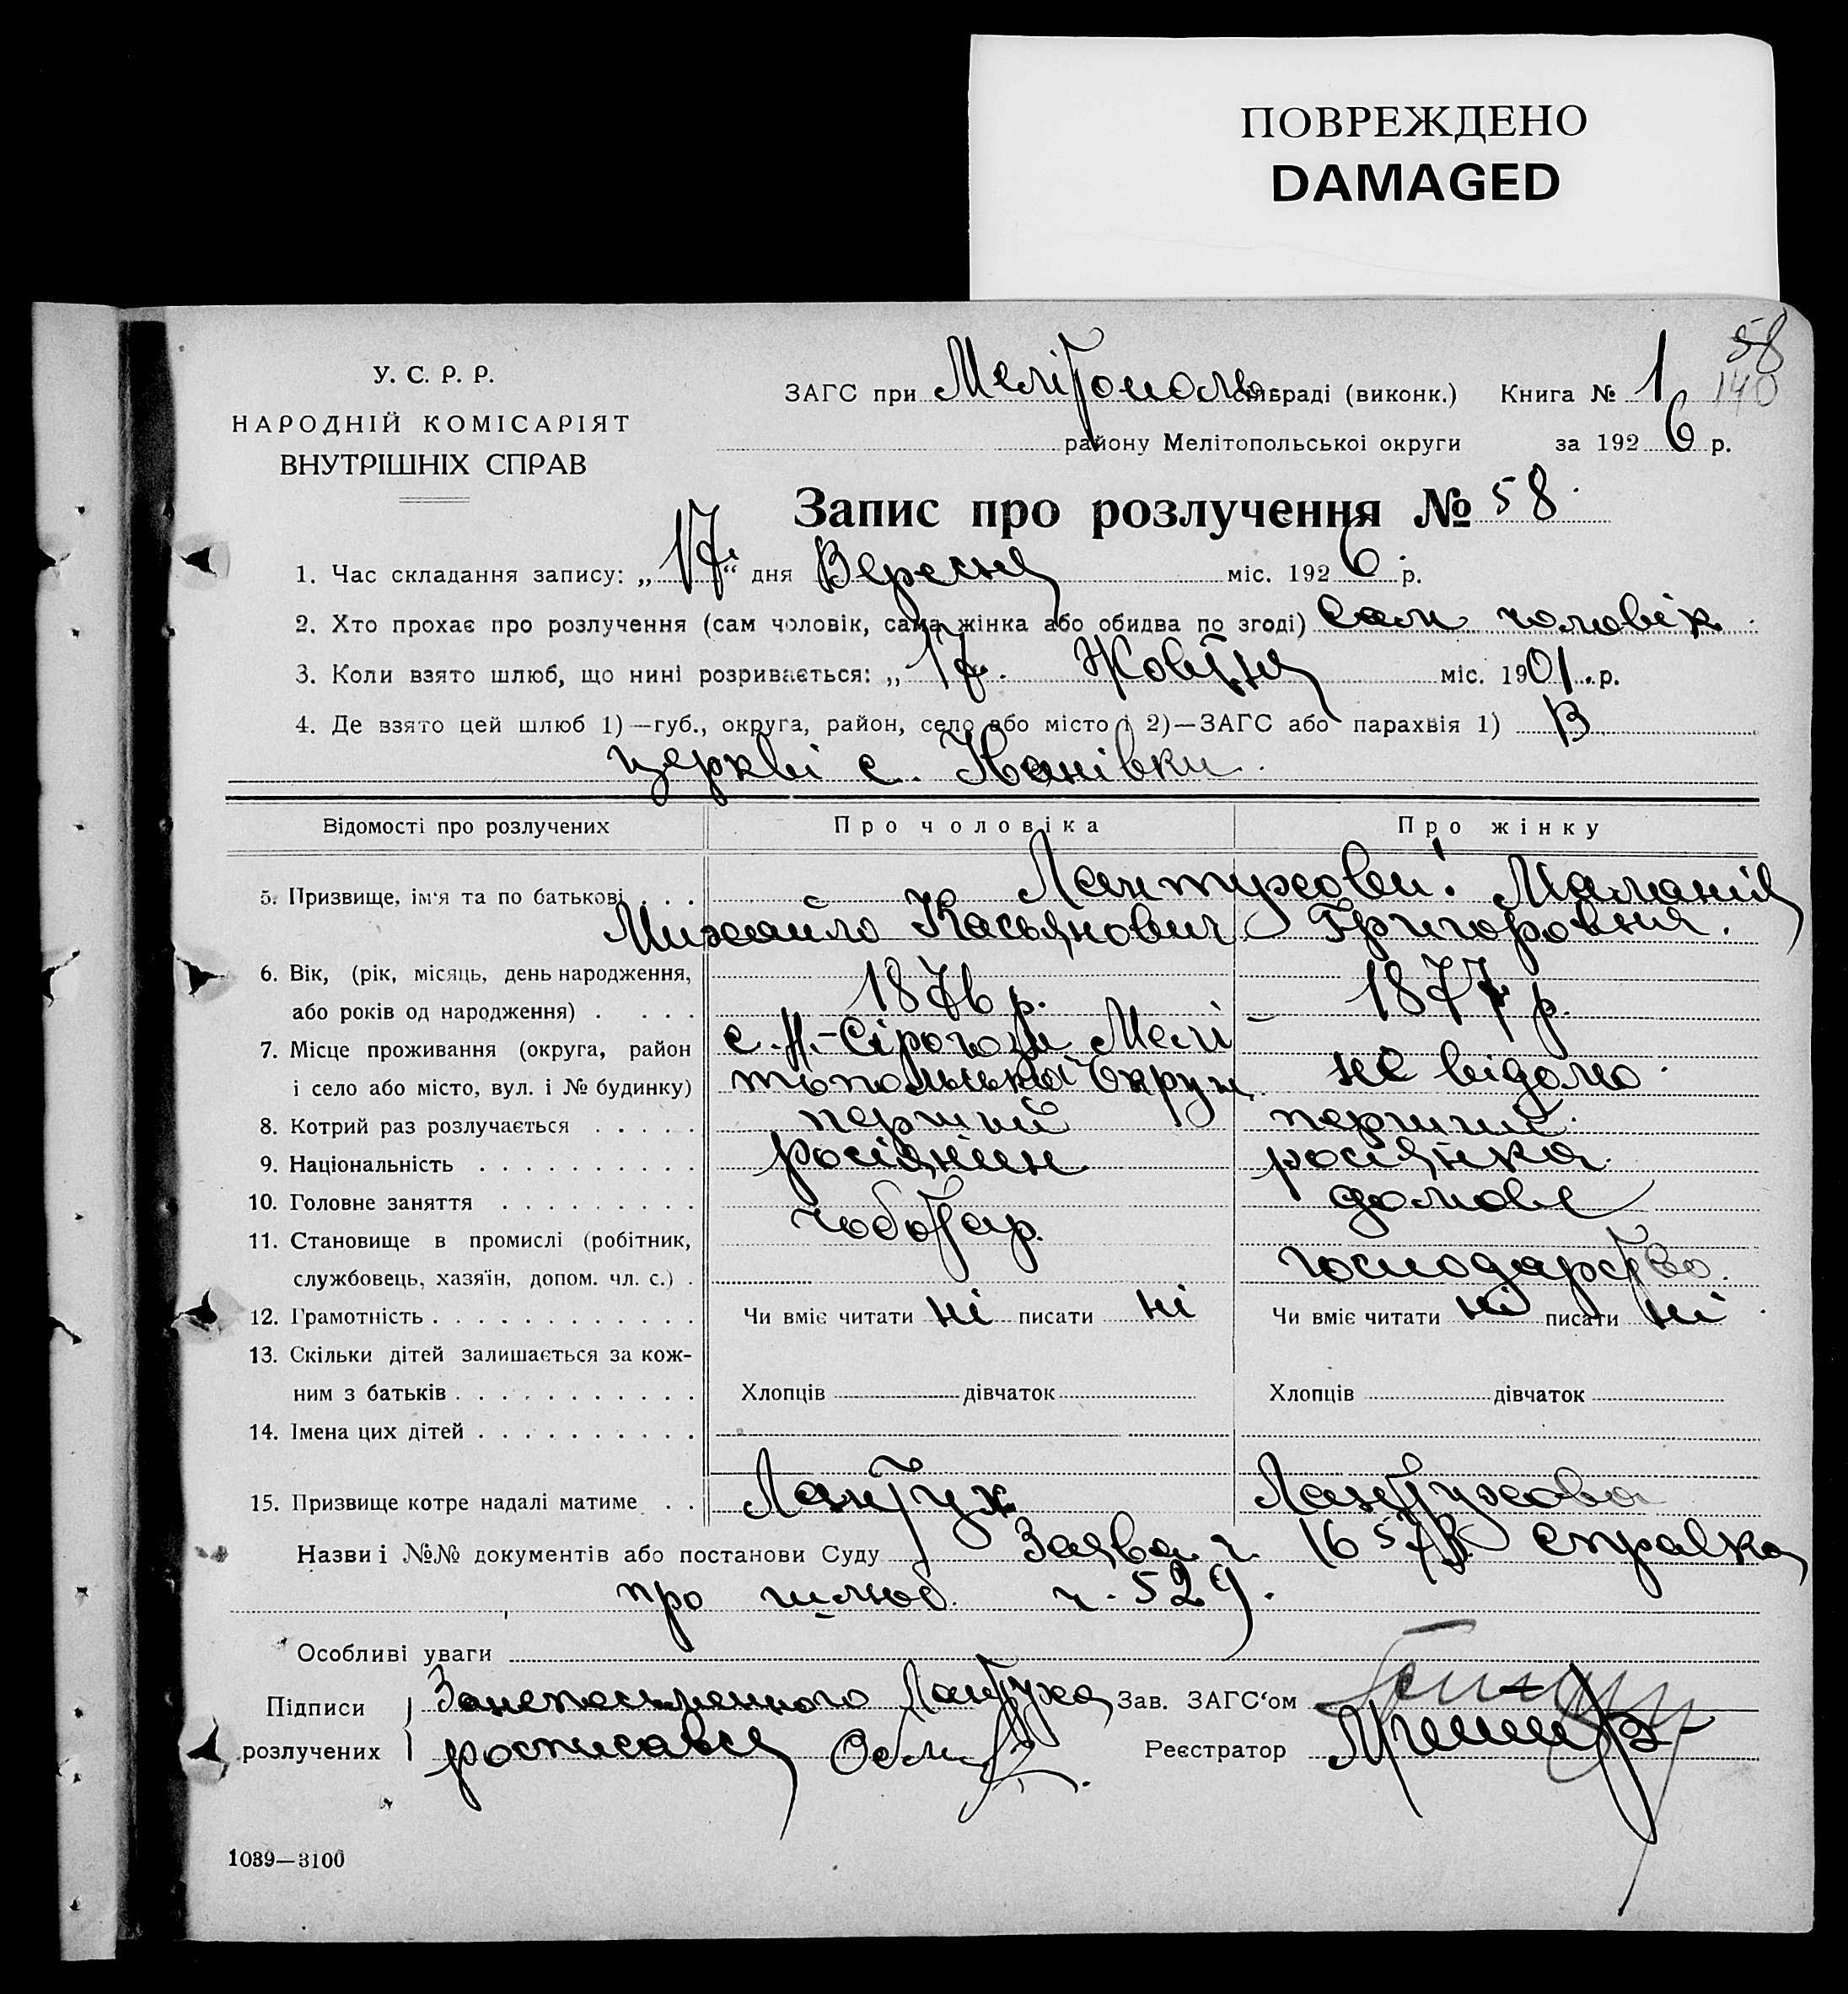 ПОВРЕЖДЕНО
DAMAGED
58
140
У. С. Р. Р.
НАРОДНІЙ КОМІСАРІЯТ
ВНУТРІШНІХ СПРАВ
ЗАГС при Мелітополь сільраді (виконк.) Книга № 1
району Мелітопольської округи за 1926 р.
Запис про розлучення № 58.
1. Час складання запису: „17" дня Вересня міс. 1926 р.
2. Хто прохає про розлучення (сам чоловік, сама жінка або обидва по згоді) сам чоловік.
3. Коли взято шлюб, що нині розривається: „17. Жовтня міс. 1901. р.
4. Де взято цей шлюб 1)—губ., округа, район, село або місто і 2)—ЗАГС або парахвія 1) В
церкві с.
Відомості про розлучених Про чоловіка Про жінку
5. Призвище, ім'я та по батькові . . . Лантухови. Маланія
Михайло Касьянович Григоровна.
6. Вік, (рік, місяць, день народження,
або років од народження) . . . . 1876 р. 1877 р.
7. Місце проживання (округа, район с. Н.-Сірогози Мелі
і село або місто, вул. і № будинку) топольської Округи не відомо.
8. Котрий раз розлучається . . . . . перший перший.
9. Національність . . . . . . . . . . росіянин росіянка.
10. Головне заняття . . . . . . . . . чоботар. домове
11. Становище в промислі (робітник,
службовець, хазяїн, допом. чл. с.) . господарство.
12. Грамотність . . . . . . . . . . . . Чи вміє читати ні писати ні Чи вміє читати ні писати ні
13. Скільки дітей залишається за кож-
ним з батьків . . . . . . . . . . . Хлопців дівчаток Хлопців дівчаток
14. Імена цих дітей . . . . . . . . . .
15. Призвище котре надалі матиме . . Лантух Лантухова
Назви і №№ документів або постанови Суду Заява ч. справка
про шлюб. ч. 529.
Особливі уваги
Підписи Занеписьменного Лантуха Зав. ЗАГС'ом
розлучених росписався Реєстратор
1039—3100